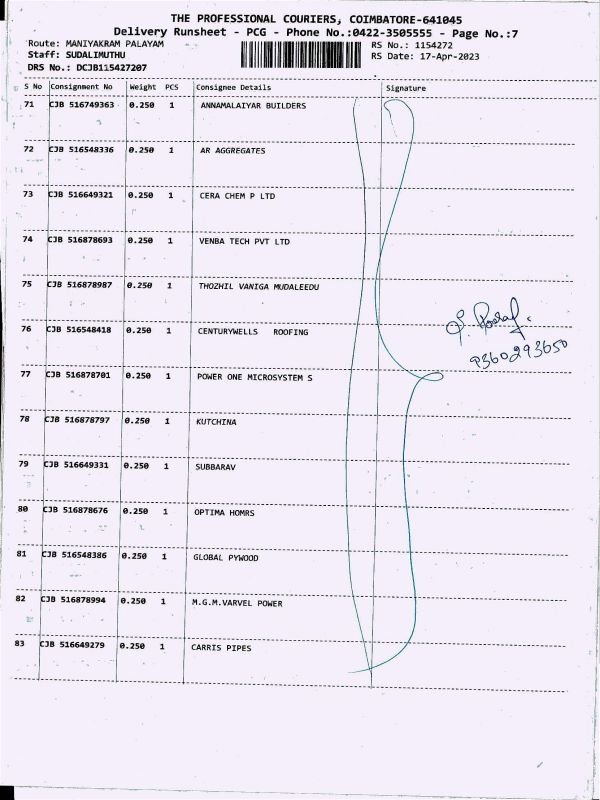 THE PROFESSIONAL COURIERS, COIMBATORE-641045
Delivery Runsheet - PCG - Phone No.:0422-3505555 - Page No.:7
Route: MANIYAKRAM PALAYAM RS No.: 1154272
Staff: SUDALIMUTHU RS Date: 17-Apr-2023
DRS No.: DCJB115427207
S No Consignment No Weight PCS Consignee Details Signature
71 CJB 516749363 0.250 1 ANNAMALAIYAR BUILDERS
72 CJB 516548336 0.250 1 AR AGGREGATES
73 CJB 516649321 0.250 1 CERA CHEM P LTD
74 CJB 516878693 0.250 1 VENBA TECH PVT LTD
75 CJB 516878987 0.250 1 THOZHIL VANIGA MUDALEEDU
76 CJB 516548418 0.250 1 CENTURYWELLS ROOFING
9360293650
77 CJB 516878701 0.250 1 POWER ONE MICROSYSTEM S
78 CJB 516878797 0.250 1 KUTCHINA
79 CJB 516649331 0.250 1 SUBBARAV
80 CJB 516878676 0.250 1 OPTIMA HOMRS
81 CJB 516548386 0.250 1 GLOBAL PYWOOD
82 CJB 516878994 0.250 1 M.G.M.VARVEL POWER
83 CJB 516649279 0.250 1 CARRIS PIPES